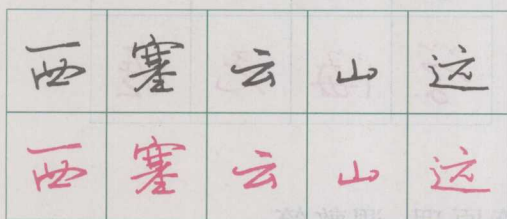 西塞云山远
西塞云山远